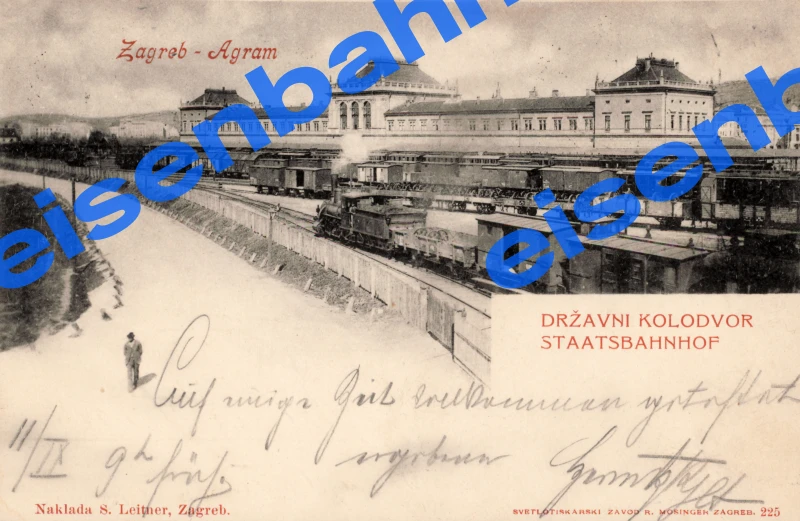 Zagreb - Agram
eisenbahn
eisenbahn
eisenb
DRŽAVNI KOLODVOR
STAATSBAHNHOF
Auf einige Zeit vollkommen
11/IX 9h früh. ergebener
Naklada S. Leitner, Zagreb.
SVETLOTISKARSKI ZAVOD R. MOSINGER ZAGREB. 225